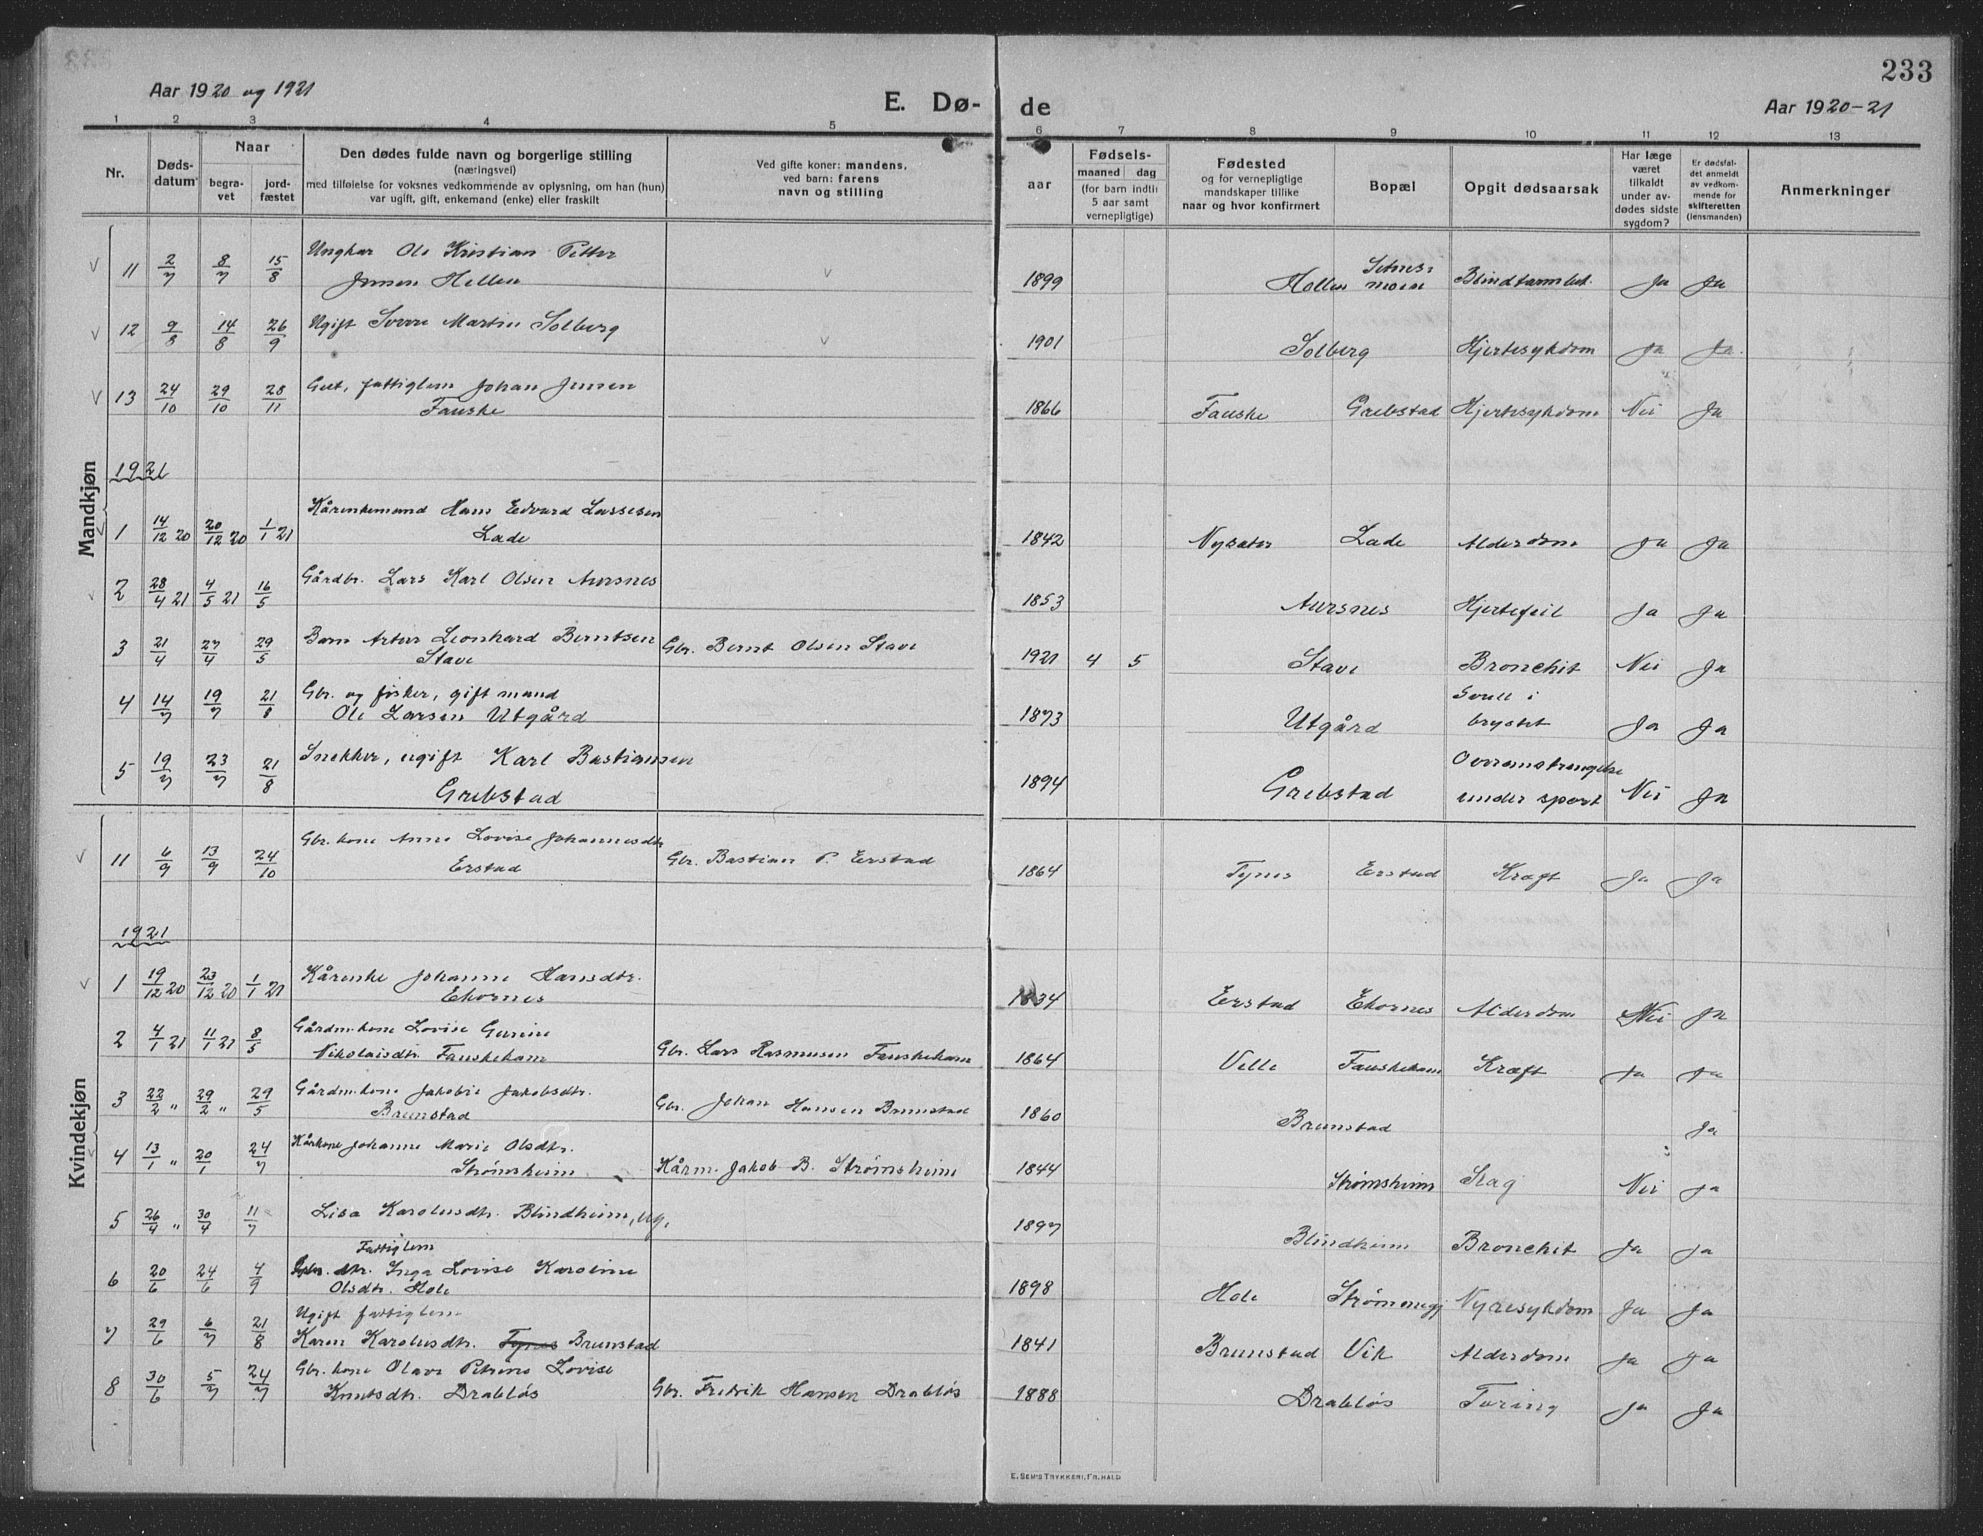 Aar 1920 og 1921
E. Dø- de
233
Aar 1920-21
1 2 3 4 5 6 7 8 9 10 11 12 13
Nr.
Døds-
datum
Naar
begra-
vet
jord-
fæstet
Den dødes fulde navn og borgerlige stilling
(næringsvei)
med tilføielse for voksnes vedkommende av oplysning, om han (hun)
var ugift, gift, enkemand (enke) eller fraskilt
Ved gifte koner: mandens,
ved barn: farens
navn og stilling
Fødsels-
aar
maaned dag
(for barn indtil
5 aar samt
vernepligtige)
Fødested
og for vernepligtige
mandskaper tillike
naar og hvor konfirmert
Bopæl
Opgit dødsaarsak
Har læge
været
tilkaldt
under av-
dødes sidste
sygdom?
Er dødsfal-
det anmeldt
av vedkom-
mende for
skifteretten
(lensmanden)
Anmerkninger
Mandkjøn
11 2/7 8/7 15/8 Ungkar Ole Kristian Petter
Jensen Hellen 1899 Hellen Blindtarmbet. Ja Ja
12 9/8 14/8 26/9 Ugift Sverre Martin Solberg 1901 Solberg Hjertesykdom Ja Ja
13 24/10 29/10 28/11 fattiglem Johan Jensen
Fauske 1866 Fauske Grebstad Hjertesykdom Nei Ja
1921
1 14/12 20 20/12 20 1/1 21 Kårenkemand Hans Edvard Lassesen
Lade 1842 Nysæter Lade Alderdom Ja Ja
2 28/4 21 4/5 21 16/5 Gårdbr. Lars Karl Olsen Aursnes 1853 Aursnes Hjertefeil Ja Ja
3 21/4 27/4 29/5 Barn Artur Leonhard Berntsen
Stave Gbr. Bernt Olsen Stave 1921 4 5 Stave Bronchit Nei Ja
4 14/7 19/7 21/8 Gbr. og fisker, gift mand
Ole Larsen Utgård 1873 Utgård Svull i
brystet Ja Ja
5 19/7 23/7 21/8 Snekker, ugift Karl Bastiansen
Grebstad 1894 Grebstad Overanstrengelse
under sport Nei Ja
Kvindekjøn
11 6/9 13/9 24/10 Gbr. kone Anne Lovise Johannesdtr
Erstad Gbr. Bastian P. Erstad 1864 Tynes Erstad Kræft Ja Ja
1921
1 19/12 20 23/12 20 1/1 21 Kårenke Johanne Hansdtr.
Ekornes 1834 Erstad Ekornes Alderdom Nei Ja
2 4/1 21 11/1 21 8/5 Gårdm.kone Lovise Gurine
Nikolaisdtr. Fauskeham Gbr. Lars Rasmusen Fauskeham 1864 Velle Fauskeham Kræft Ja Ja
3 22/2 „ 29/2 „ 29/5 Gårdm.kone Jakobie Jakobsdtr.
Brunstad Gbr. Johan Hansen Brunstad 1860 Brunstad Ja
4 13/1 „ 20/1 24/7 Kårkone Johanne Marie Olsdtr.
Strømsheim Kårm. Jakob B. Strømsheim 1844 Strømsheim Slag Nei Ja
5 26/4 „ 30/4 11/7 Lisa Karolusdtr. Blindheim, ug. 1897 Blindheim Bronchit Ja Ja
Fattiglem
6 20/6 24/6 4/9 dtr. Inga Lovise Karoline
Olsdtr. Hole 1898 Hole Nyresykdom Ja Ja
Ugift fattiglem
7 29/6 6/7 21/8 Karen Karolusdtr. Tynes Brunstad 1841 Brunstad Vik Alderdom Ja Ja
8 30/6 5/7 24/7 Gbr. kone Olave Petrine Lovise
Knutsdtr. Drabløs Gbr. Fredrik Hansen Drabløs 1888 Drabløs Turing Ja Ja
E. SEM'S TRYKKERI, FR.HALD